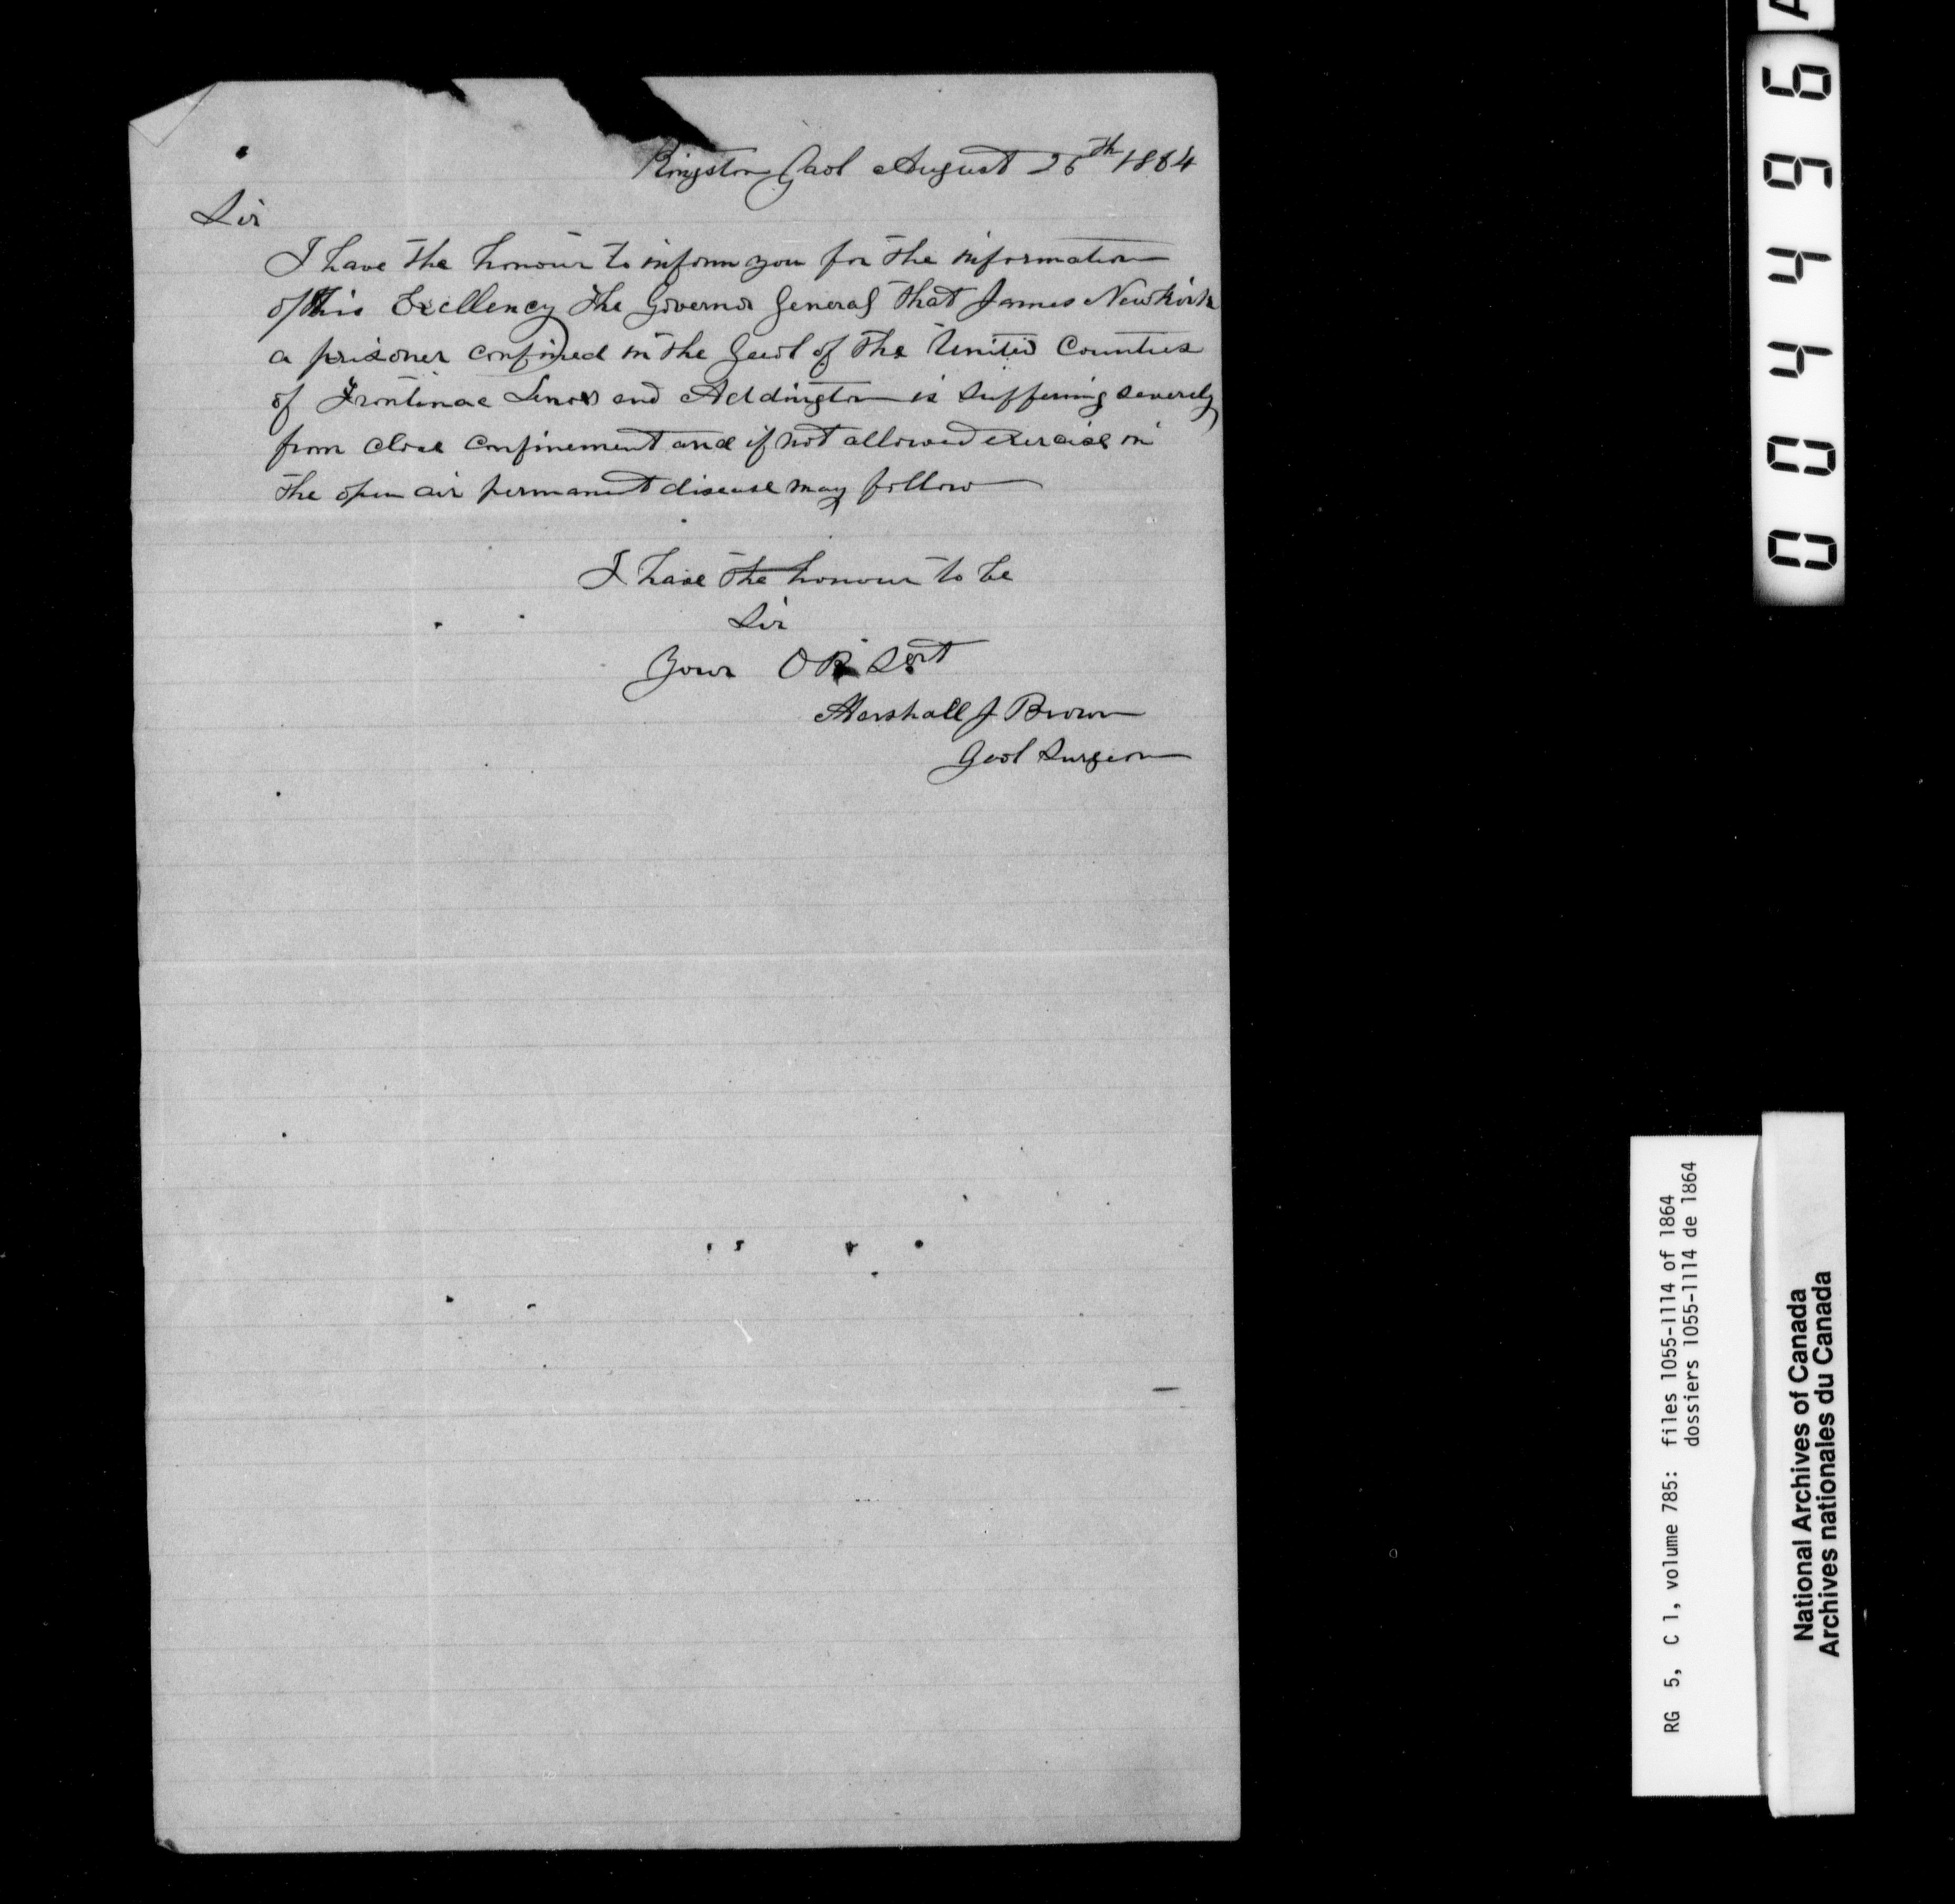 Kingston Gaol August 26th 1864
Sir
I have the honour to inform you for the information
of His Excellency the Governor General that James Newkirk
a prisoner confined in the Gaol of the United Counties
of Frontinac Lenox and Addington is suffering severely
from close confinement and if not allowed exercise in
the open air permanent disease may follow
I have the honour to be
Sir
Your Ob Sert
Marshall J Brown
Gaol Surgeon
004496
RG 5, C 1, volume 785: files 1055-1114 of 1864
dossiers 1055-1114 de 1864
National Archives of Canada
Archives nationales du Canada